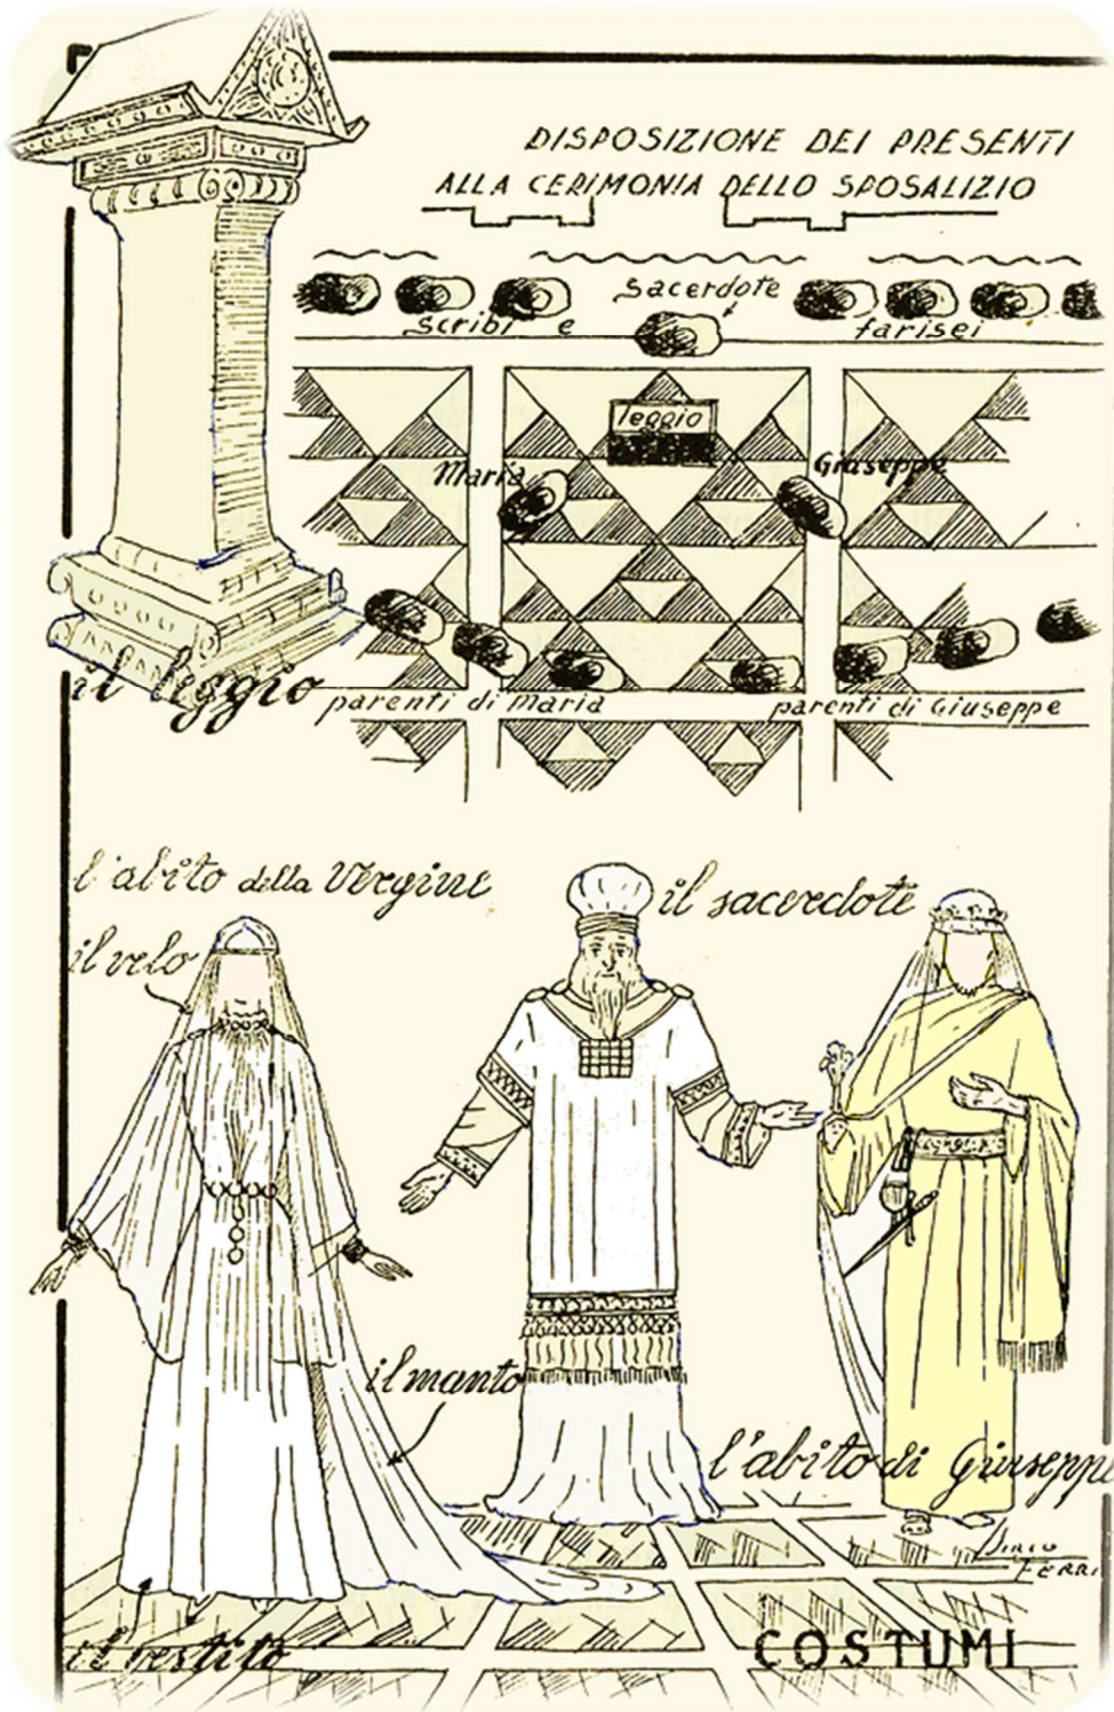 DISPOSIZIONE DEI PRESENTI
ALLA CERIMONIA DELLO SPOSALIZIO
sacerdote
scribi e farisei
leggio
Maria
Giuseppe
il leggio
parenti di Maria
parenti di Giuseppe
l'abito della Vergine
il sacerdote
il velo
il manto
l'abito di Giuseppe
Dirco
FERRI
il vestito
COSTUMI